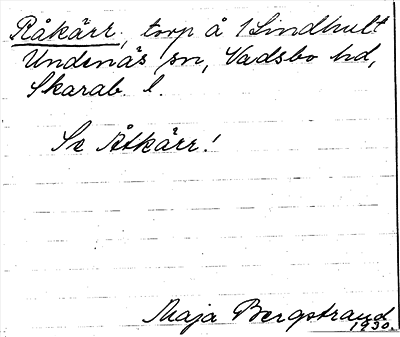 Råkärr, torp å 1 Lindhult
Undenäs sn, Vadsbo hd,
Skarab. l.
Se Åtkärr!
Maja Bergstrand
1930.